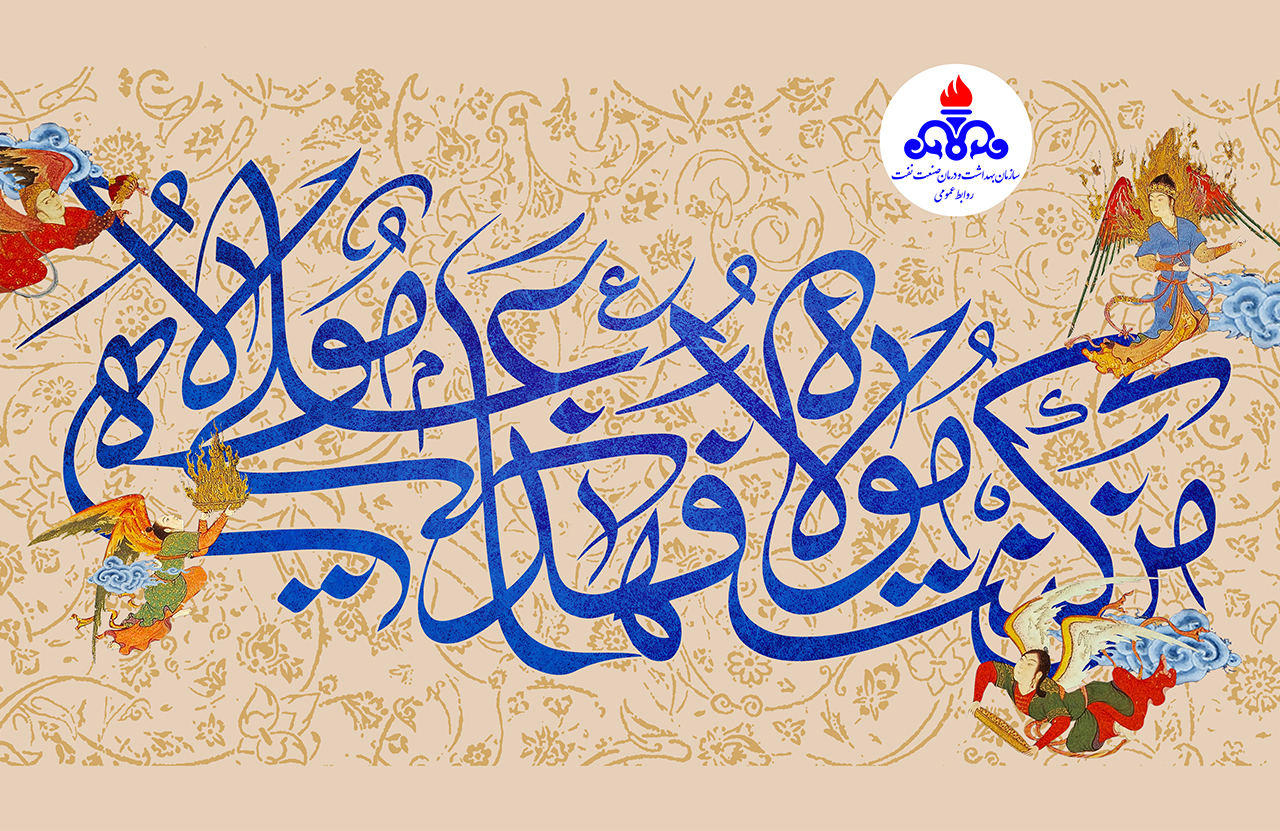 سازمان بهداشت و درمان صنعت نفت
روابط عمومی
من کنت مولاه فهذا علی مولاه